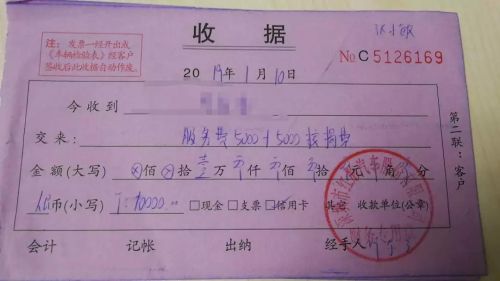 收 据
注：发票一经开出或
《车辆检验表》经客户
签收后此收据自动作废。
№ C 5126169
2019年1月10日
今收到
交来：服务费5000+5000按揭费
金额(大写) ⊗佰⊗拾壹万 仟 佰 拾 元 角 分
币(小写) 10000.00 □现金 □支票 □信用卡 其它 收款单位(公章)
会计 记帐 出纳 经手人
第二联：客户